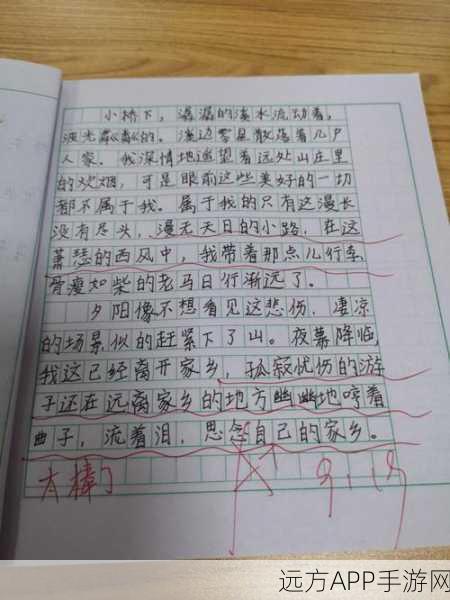 小桥下，潺潺的溪水流动着，
波光粼粼的。溪边零星散落着几户
人家。我深情地遥望着远处山庄里
的炊烟，可是眼前这些美好的一切
都不属于我。属于我的只有这漫长
没有尽头，漫无天日的小路，在这
萧瑟的西风中，我带着那点儿行李
骨瘦如柴的老马日行渐远了。
夕阳像不想看见这悲伤，凄凉
的场景似的赶紧下了山。夜幕降临，
我这已经离开家乡，孤寂忧伤的游
子还在远离家乡的地方幽幽地哼着
曲子，流着泪，思念自己的家乡。
太棒了
9.19
远方APP手游网